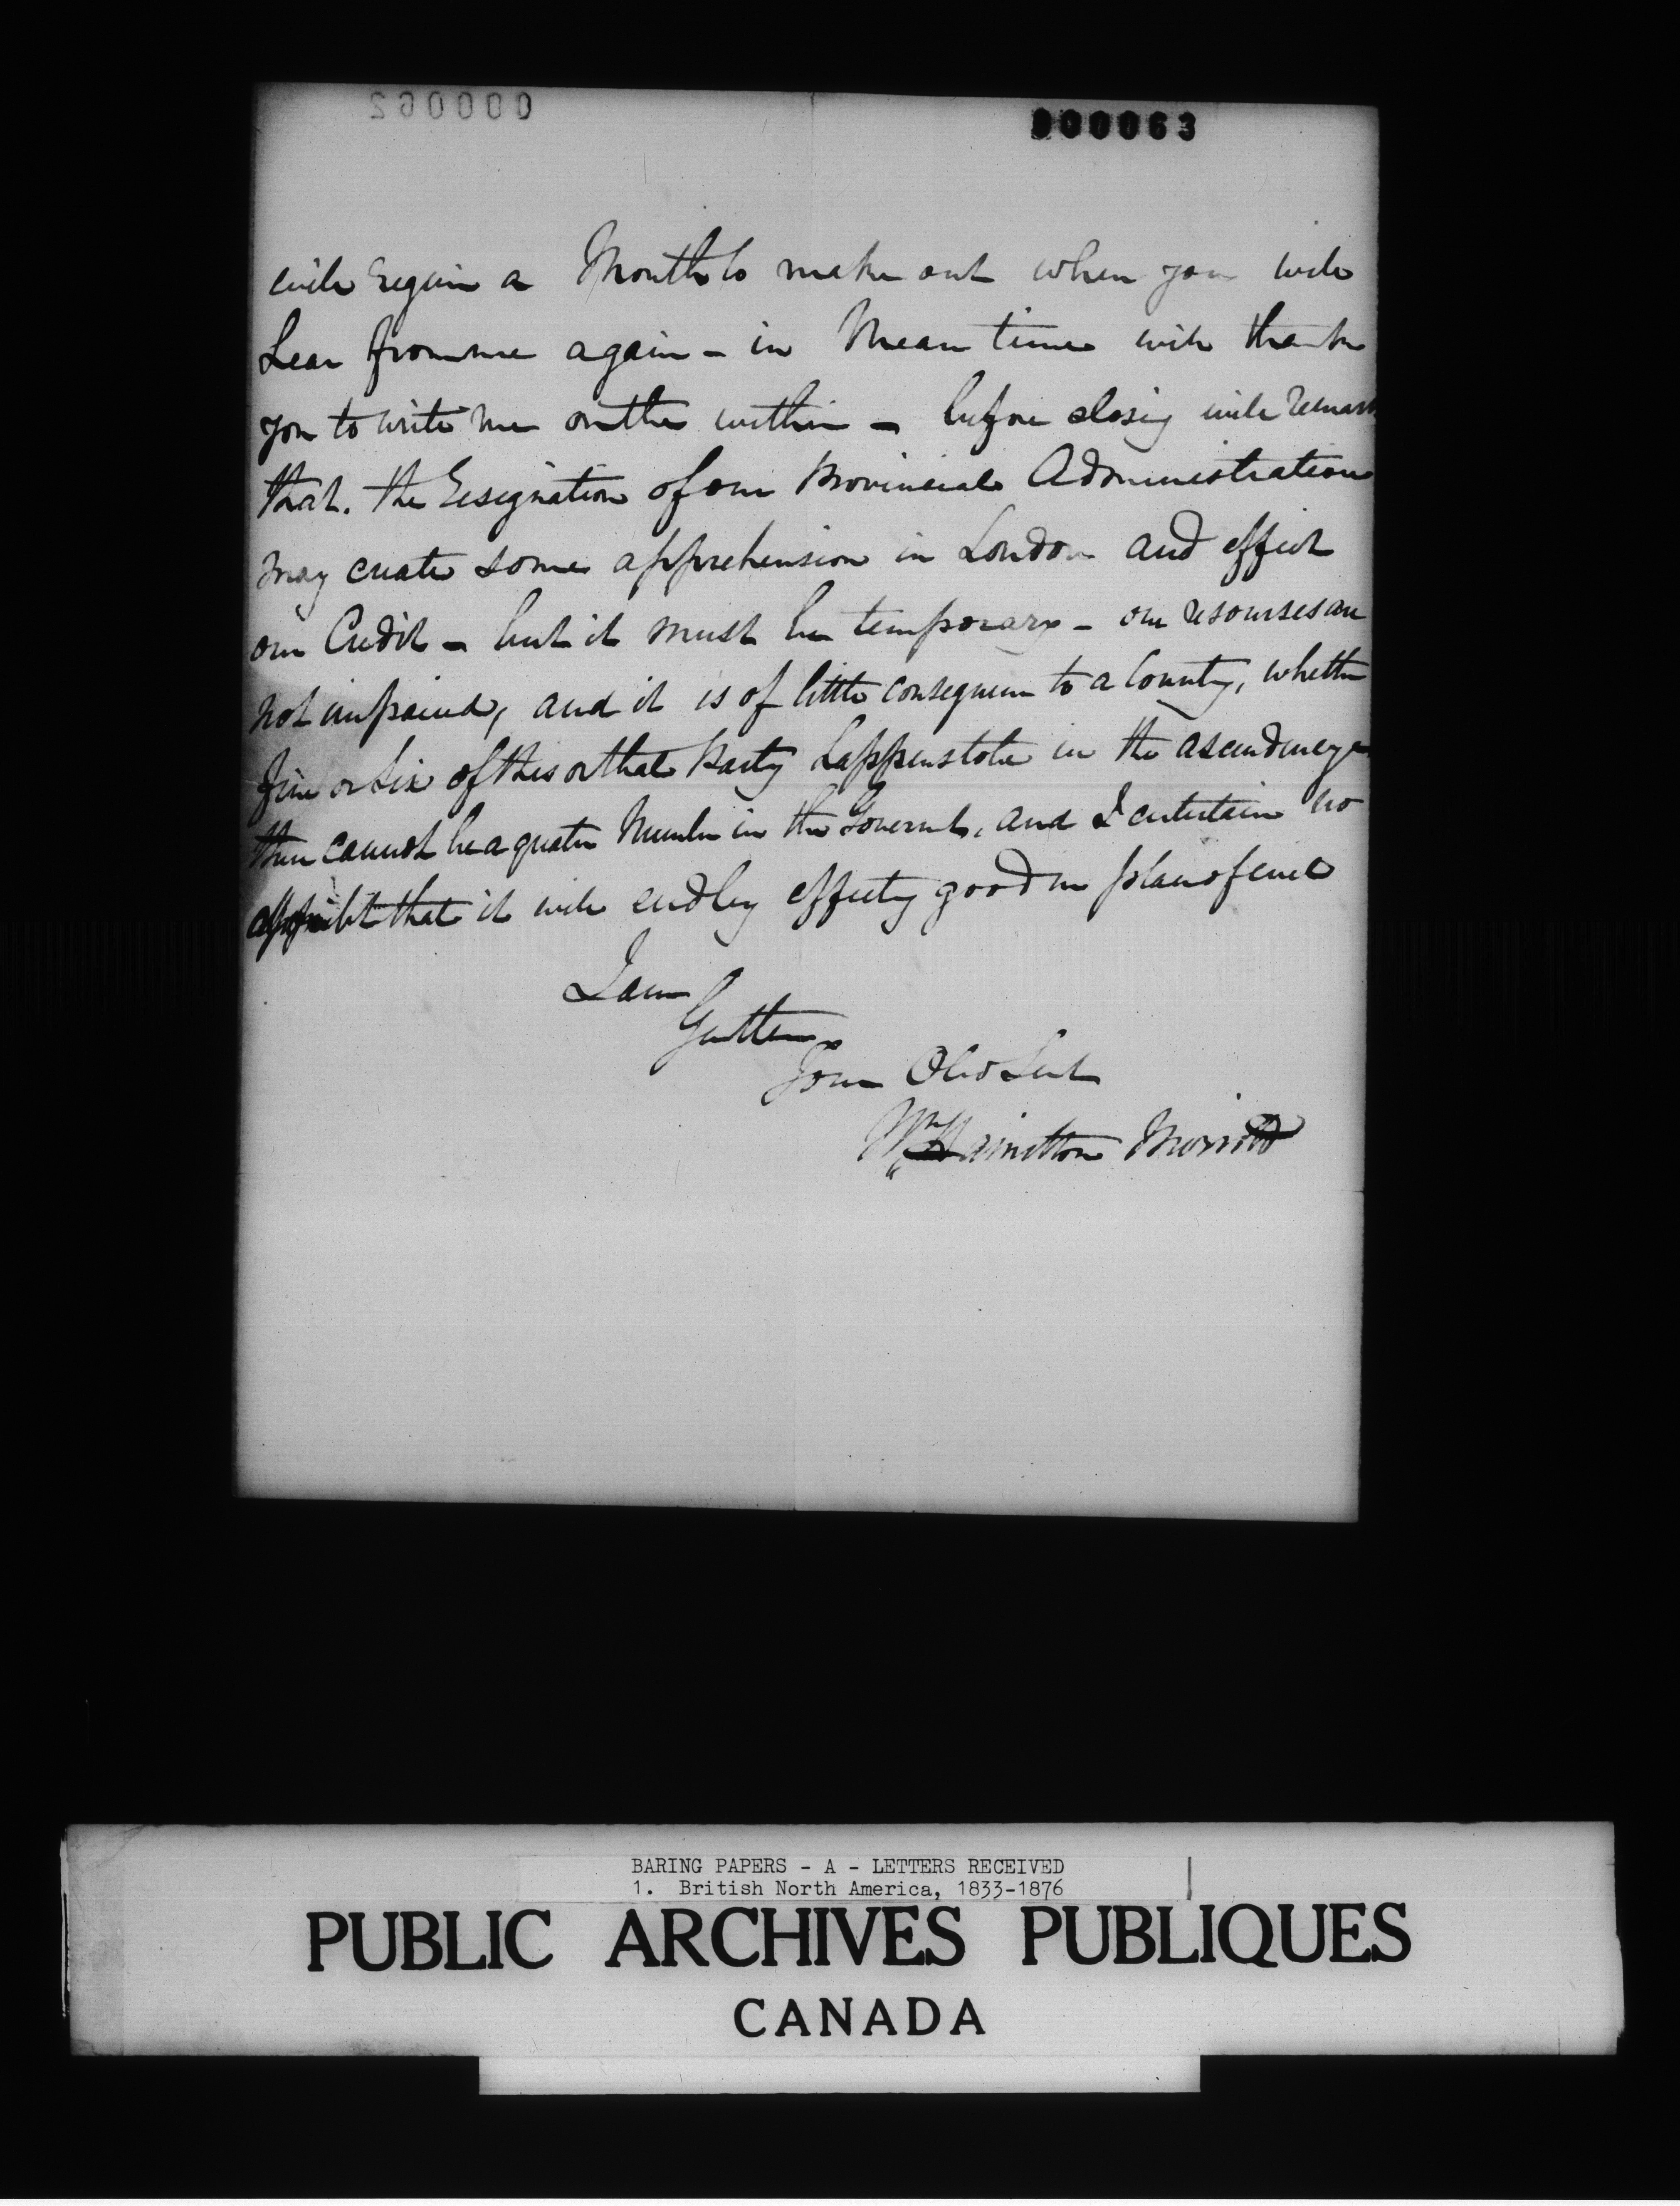 000062
000063
will require a Month to make out when you will
hear from me again - in Mean time will thank
you to write me on the within - before closing will remark
that. the resignation of our Provincial Administration
may create some apprehension in London and effect
our Credit - but it must be temporary - our resourses are
not impaired, and it is of little consequence to a Country, whether
five or six of this or that Party happens to be in the ascendency -
there cannot be a greater Number in the Governmt, and I entertain no
doubt that it will end by effecting good in place of evil
I am
Gentlemen
Your Obed Sert
Wm Hamilton Merritt
BARING PAPERS - A - LETTERS RECEIVED
1. British North America, 1833-1876
PUBLIC ARCHIVES PUBLIQUES
CANADA